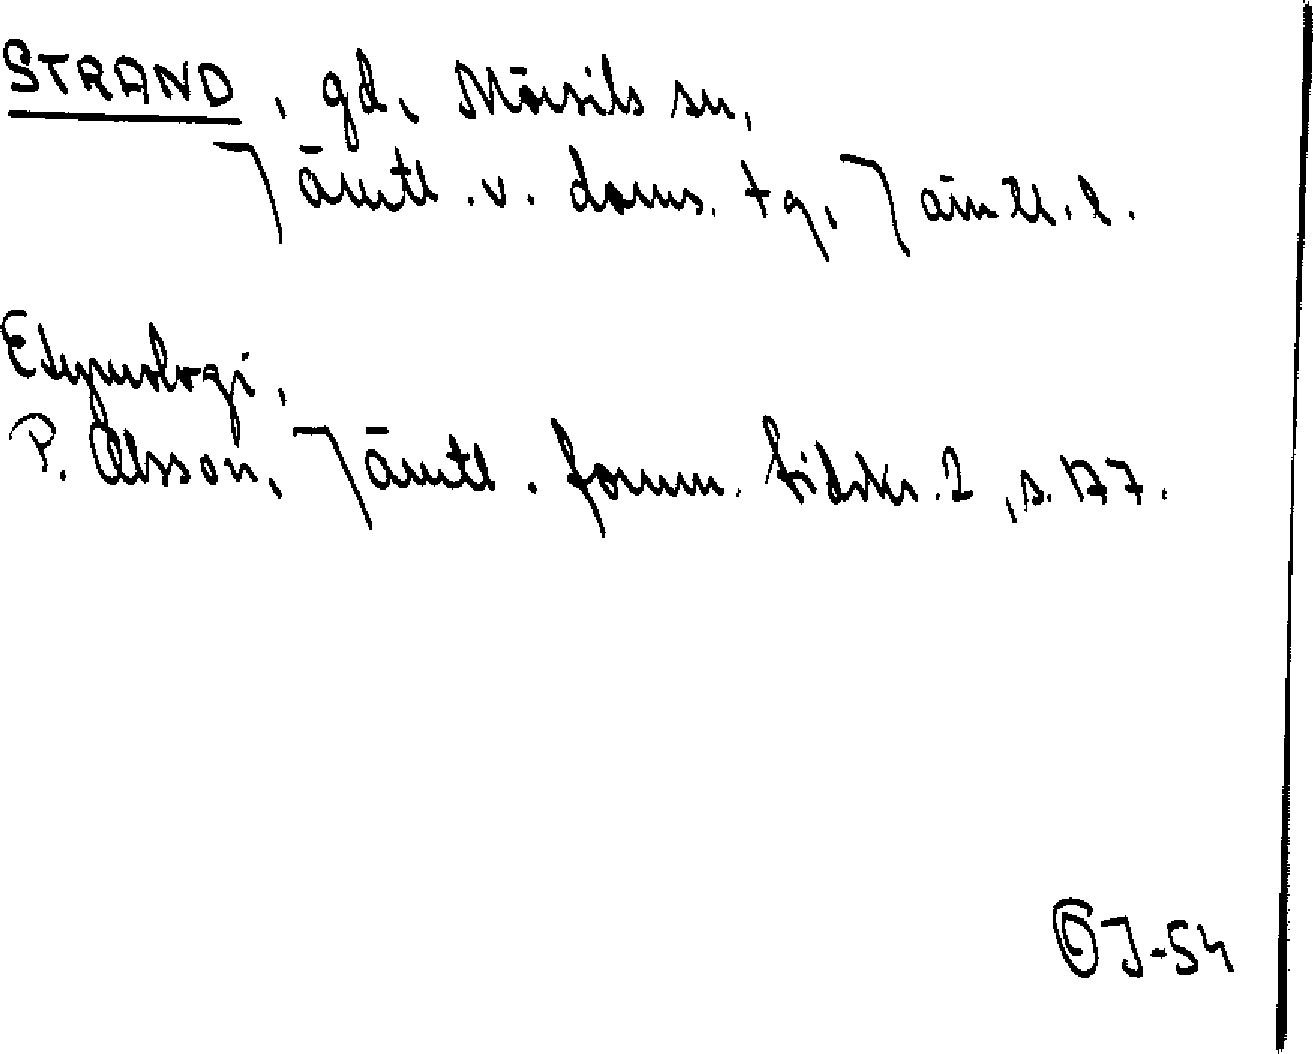 STRAND, gd, Mörsils sn,
Jämtl. v. doms. tg, Jämtl. l.
Etymologi,
P. Olsson, Jämtl. fornm. tidskr. 2, s. 177.
J-54